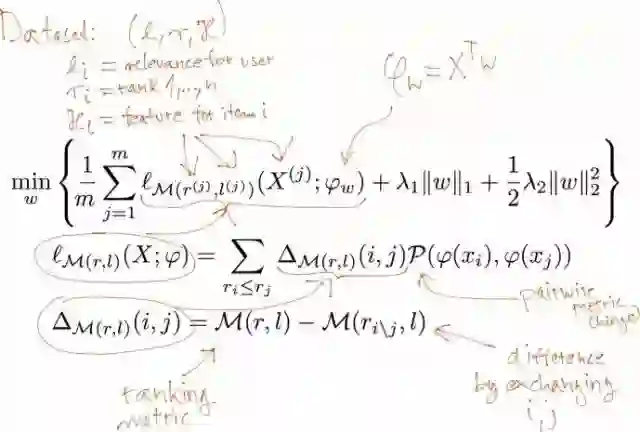 Dataset: (l, r, X)
l_i = relevance for user
r_i = rank 1,..,n
x_i = feature for item i
φ_w = X^T w
min_w { 1/m ∑_{j=1}^{m} ℓ_{M(r^{(j)}, l^{(j)})}(X^{(j)}; φ_w) + λ_1‖w‖_1 + 1/2 λ_2‖w‖_2^2 }
ℓ_{M(r,l)}(X; φ) = ∑_{r_i ≤ r_j} Δ_{M(r,l)}(i, j) P(φ(x_i), φ(x_j))
pairwise
metric
change
Δ_{M(r,l)}(i, j) = M(r, l) − M(r_{i\j}, l)
ranking
metric
difference
by exchanging
i,j